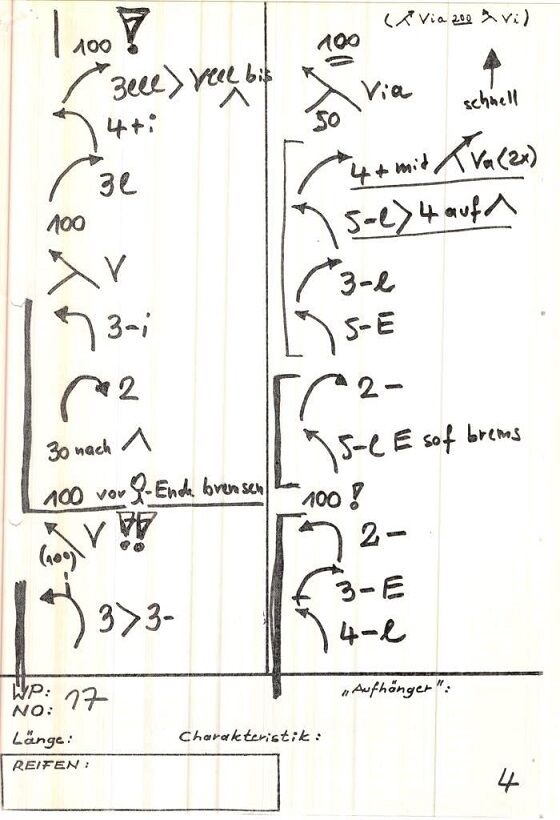 100 !
3lll > Vlll bis
4+i
3l
100
V
3-i
2
30 nach
100 vor -Ende bremsen
V !!
(100)
3>3-
(Via 200 Vi)
100
schnell
Via
50
4+mit Va(2x)
5-l>4 auf
3-l
5-E
2-
5-l E sof brems
100!
2-
3-E
4-l
WP: 17
NO:
„Aufhänger":
Länge: Charakteristik:
REIFEN:
4